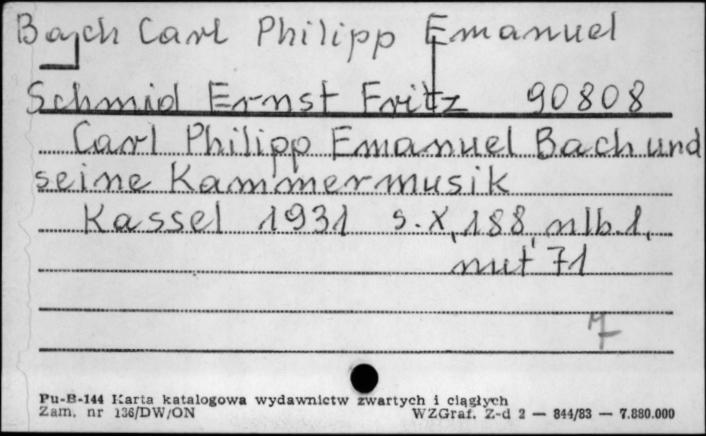 Bach Carl Philipp Emanuel
Schmid Ernst Fritz 90808
Carl Philipp Emanuel Bach und
seine Kammermusik
Kassel 1931 s. X, 188, nlb. 1,
nut 71
7
Pu-B-144 Karta katalogowa wydawnictw zwartych i ciągłych
Zam. nr 136/DW/ON WZGraf. Z-d 2 — 844/83 — 7.880.000